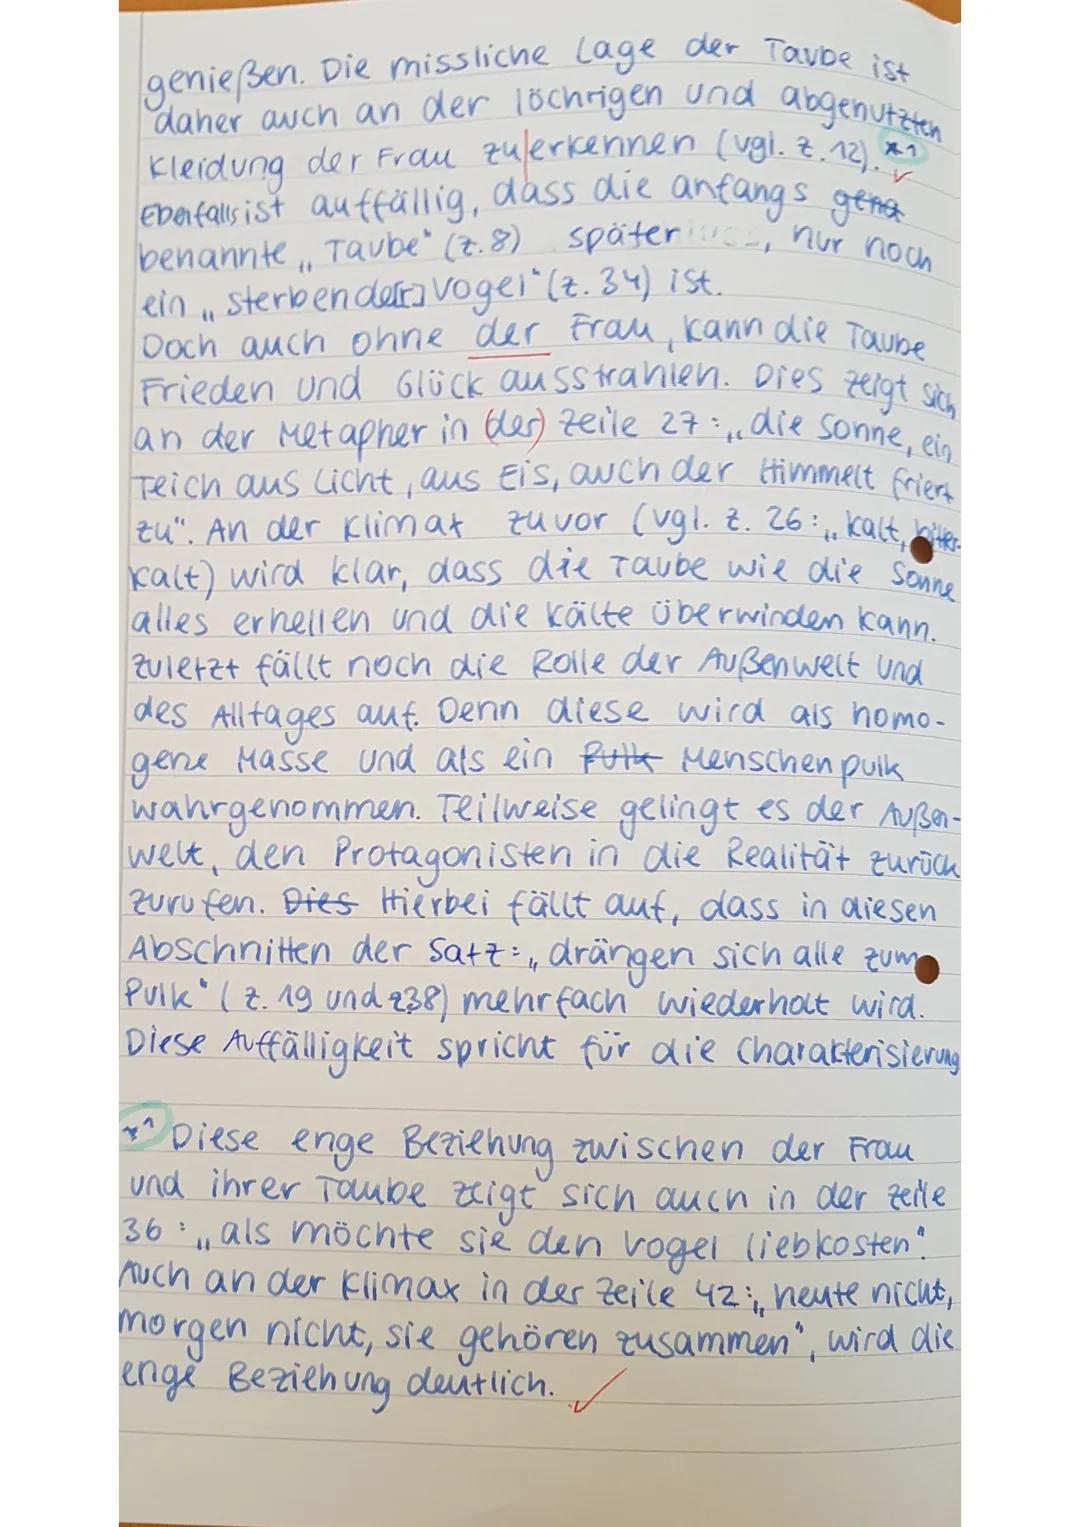 genießen. Die missliche Lage der Taube ist
daher auch an der löchrigen und abgenutzten
Kleidung der Frau zu erkennen (vgl. Z. 12). *1
Ebenfalls ist auffällig, dass die anfangs
benannte „Taube" (Z. 8) später, nur noch
ein „sterbende[r] Vogel" (Z. 34) ist.
Doch auch ohne der Frau, kann die Taube
Frieden und Glück ausstrahlen. Dies zeigt sich
an der Metapher in (der) Zeile 27: „die Sonne, ein
Teich aus Licht, aus Eis, auch der Himmelt friert
zu". An der Klimax zuvor (vgl. Z. 26: „kalt, bitter-
kalt) wird klar, dass die Taube wie die Sonne
alles erhellen und die Kälte überwinden kann.
Zuletzt fällt noch die Rolle der Außenwelt und
des Alltages auf. Denn diese wird als homo-
gene Masse und als ein Pulk Menschenpulk
wahrgenommen. Teilweise gelingt es der Außen-
welt, den Protagonisten in die Realität zurück
zurufen. Dies Hierbei fällt auf, dass in diesen
Abschnitten der Satz: „drängen sich alle zum
Pulk" (Z. 19 und Z38) mehrfach wiederholt wird.
Diese Auffälligkeit spricht für die Charakterisierung
*1 Diese enge Beziehung zwischen der Frau
und ihrer Taube zeigt sich auch in der Zeile
36: „als möchte sie den Vogel liebkosten".
Auch an der Klimax in der Zeile 42: „heute nicht,
morgen nicht, sie gehören zusammen", wird die
enge Beziehung deutlich.